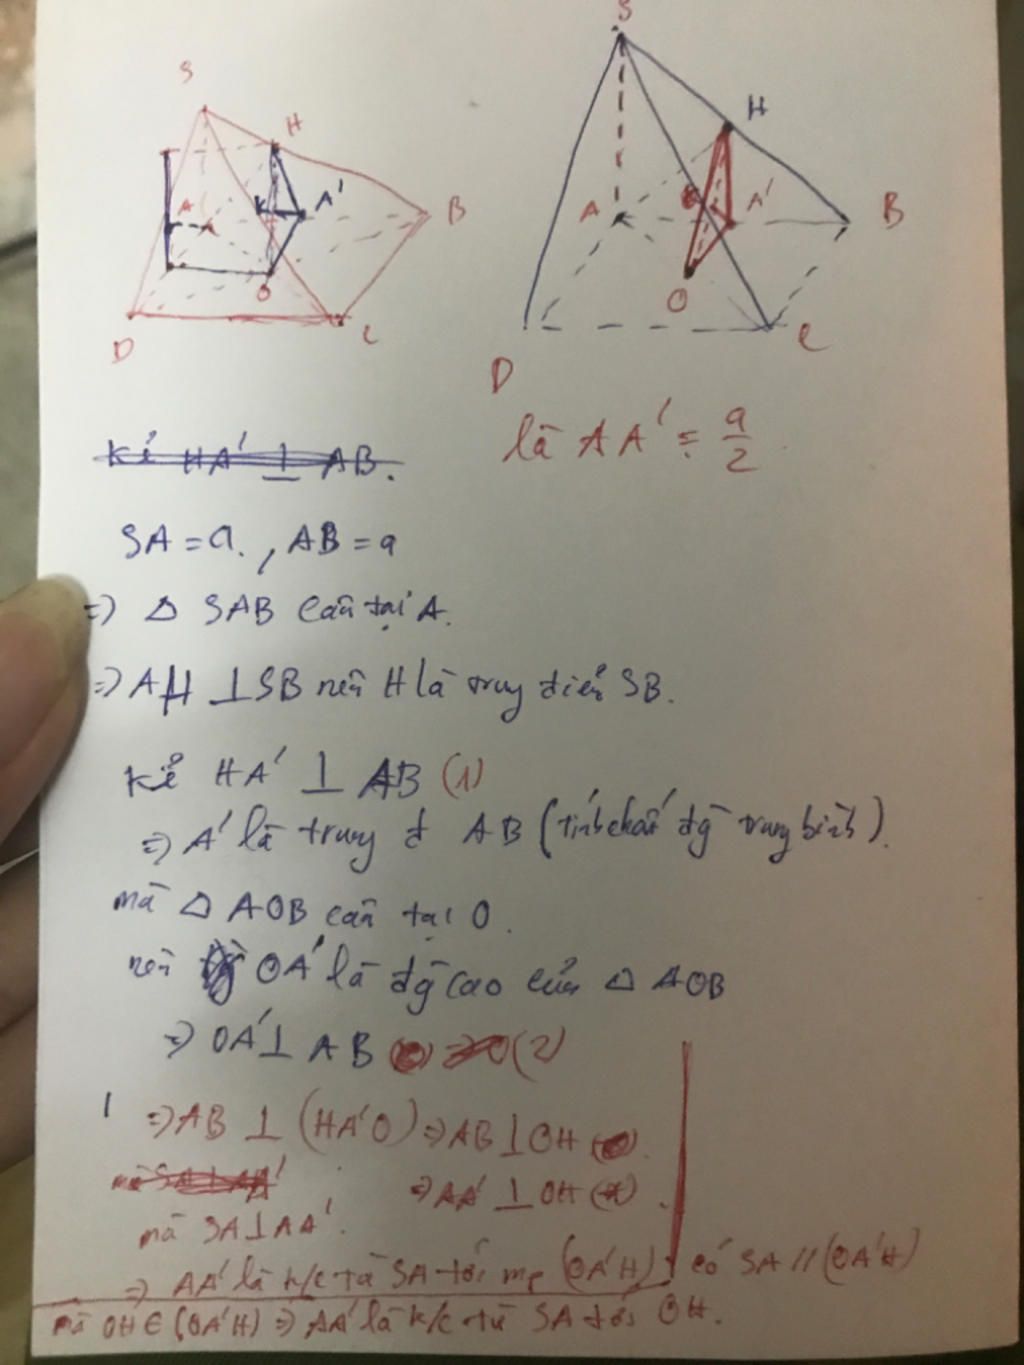 S
H
A'
K
A
B
O
D
C
S
H
A
A'
B
O
C
D
là AA' = a/2
Kẻ HA' ⊥ AB.
SA = a. , AB = a
=> Δ SAB cân tại A.
=> AH ⊥ SB nên H là trung điểm SB.
kẻ HA' ⊥ AB (1)
=> A' là trung đ AB (tính chất đg trung bình).
mà Δ AOB cân tại O.
nên OA' là đg cao của Δ AOB
=> OA' ⊥ AB (2)
=> AB ⊥ (HA'O) => AB ⊥ OH
=> AA' ⊥ OH (*).
mà SA ⊥ AA'.
=> AA' là k/c từ SA tới mp (OA'H) có SA // (OA'H)
mà OH ∈ (OA'H) => AA' là k/c từ SA tới OH.